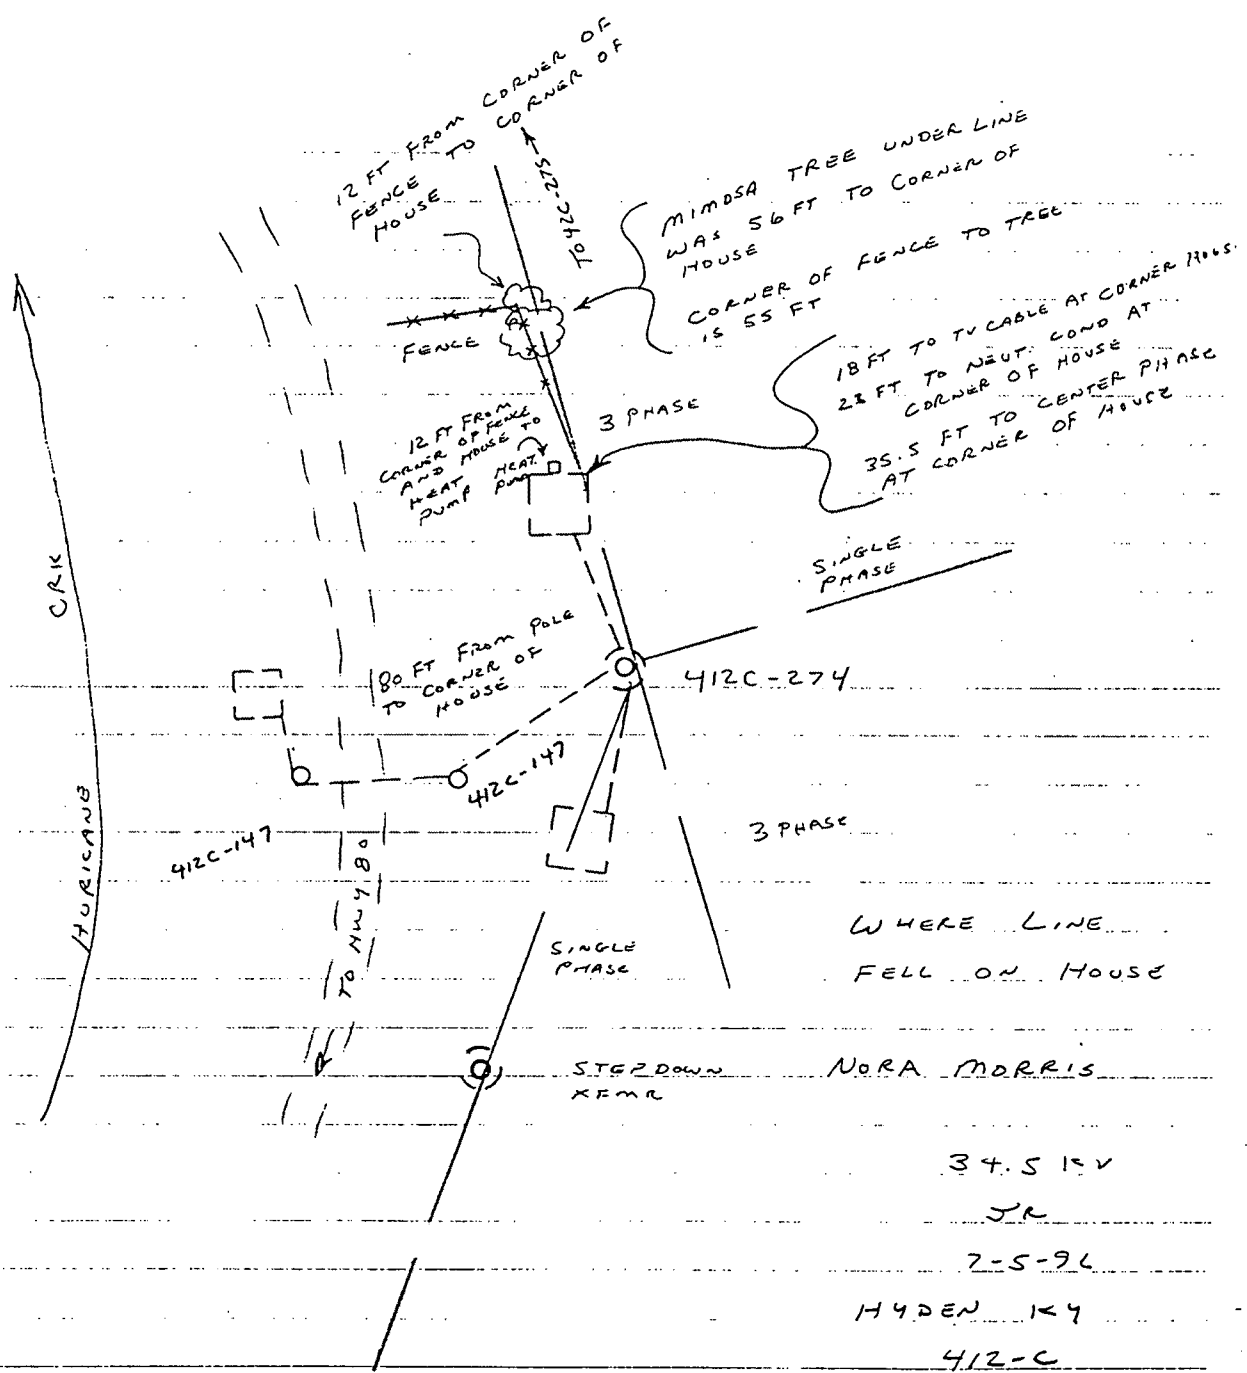 12 FT FROM CORNER OF
FENCE TO CORNER OF
HOUSE
TO 42C-275
MIMOSA TREE UNDER LINE
WAS 56 FT TO CORNER OF
HOUSE
CORNER OF FENCE TO TREE
IS 55 FT
FENCE
18 FT TO TV CABLE AT CORNER HOUS.
23 FT TO NEUT. COND AT
CORNER OF HOUSE
35.5 FT TO CENTER PHASE
AT CORNER OF HOUSE
3 PHASE
12 FT FROM
CORNER OF FENCE
AND HOUSE TO
HEAT
PUMP
HEAT
PUMP
SINGLE
PHASE
CRK
80 FT FROM POLE
TO CORNER OF
HOUSE
412C-274
412C-147
412C-147
3 PHASE
HURICANE
TO HWY 80
WHERE LINE
FELL ON HOUSE
SINGLE
PHASE
STEPDOWN
XFMR
NORA MORRIS
34.5 KV
JR
7-5-96
HYDEN KY
412-C